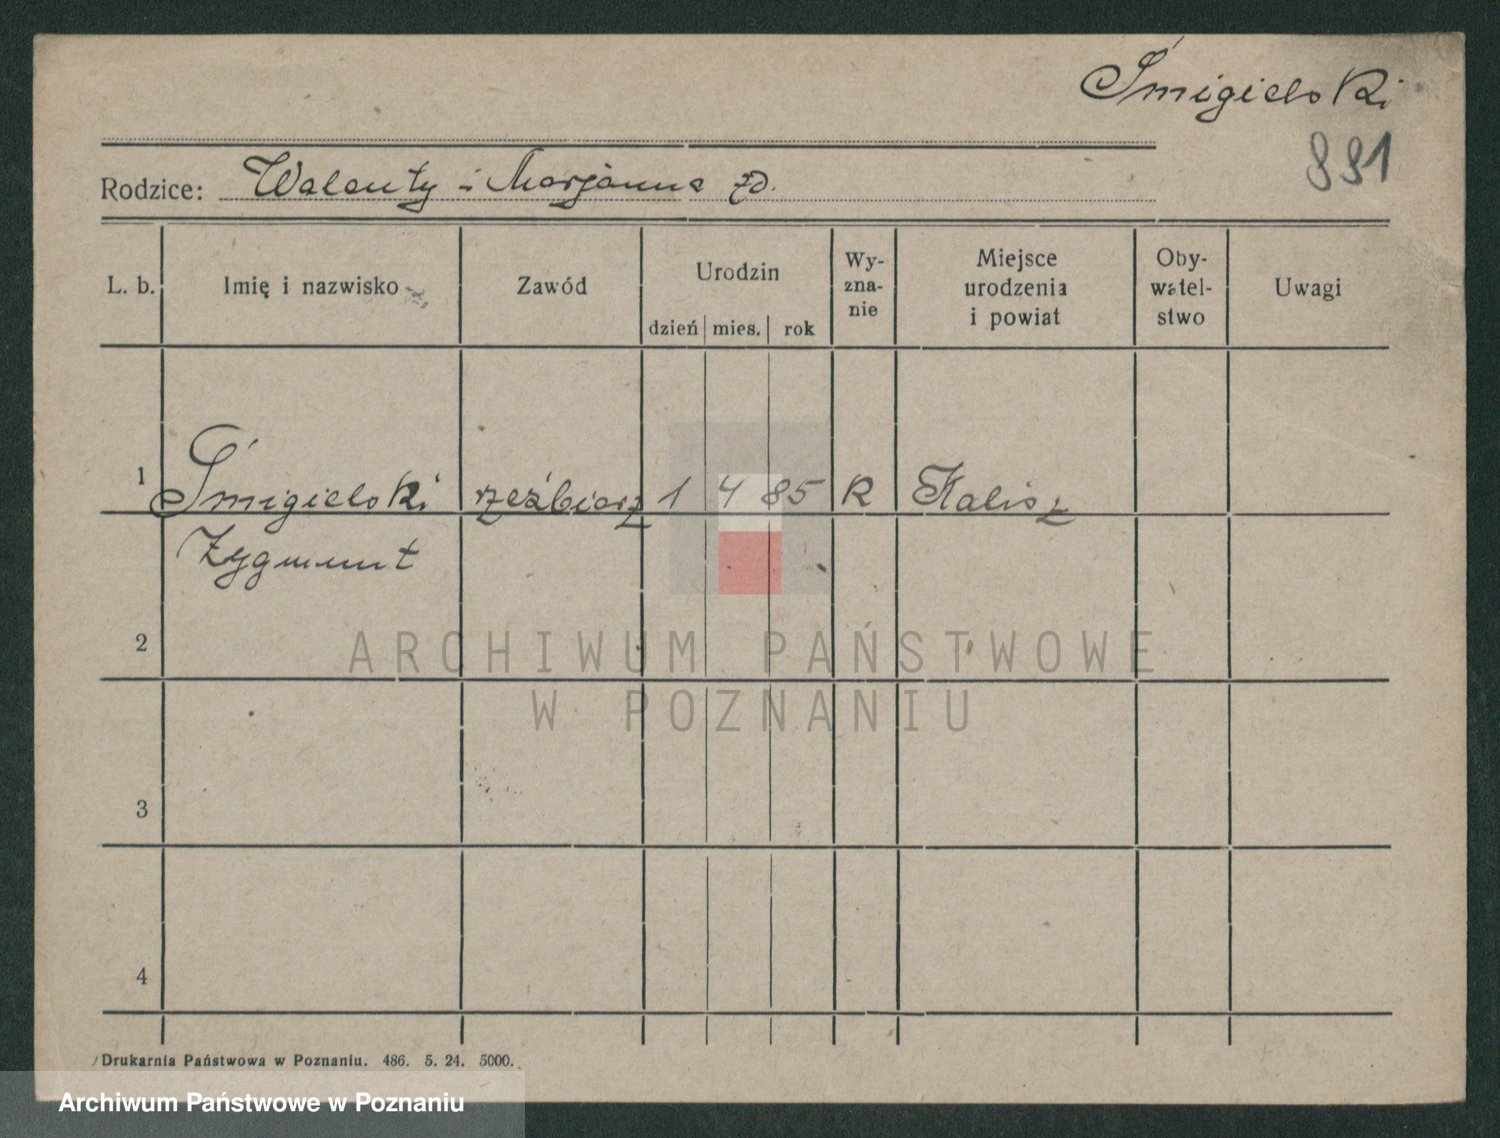 Śmigielski
891
Rodzice: Walenty i Marjanna
L. b. Imię i nazwisko Zawód Urodzin dzień mies. rok Wy-zna-nie Miejsce urodzenia i powiat Oby-watel-stwo Uwagi
1 Śmigielski rzeźbiarz 1 4 85 R Kalisz
Zygmunt
2
ARCHIWUM PAŃSTWOWE
W POZNANIU
3
4
Drukarnia Państwowa w Poznaniu. 486. 5. 24. 5000.
Archiwum Państwowe w Poznaniu